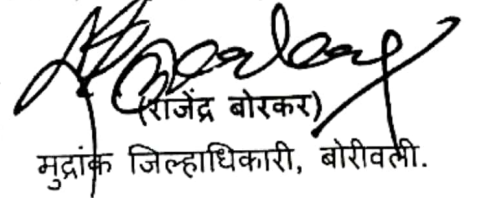 (राजेंद्र बोरकर)
मुद्रांक जिल्हाधिकारी, बोरीवली.